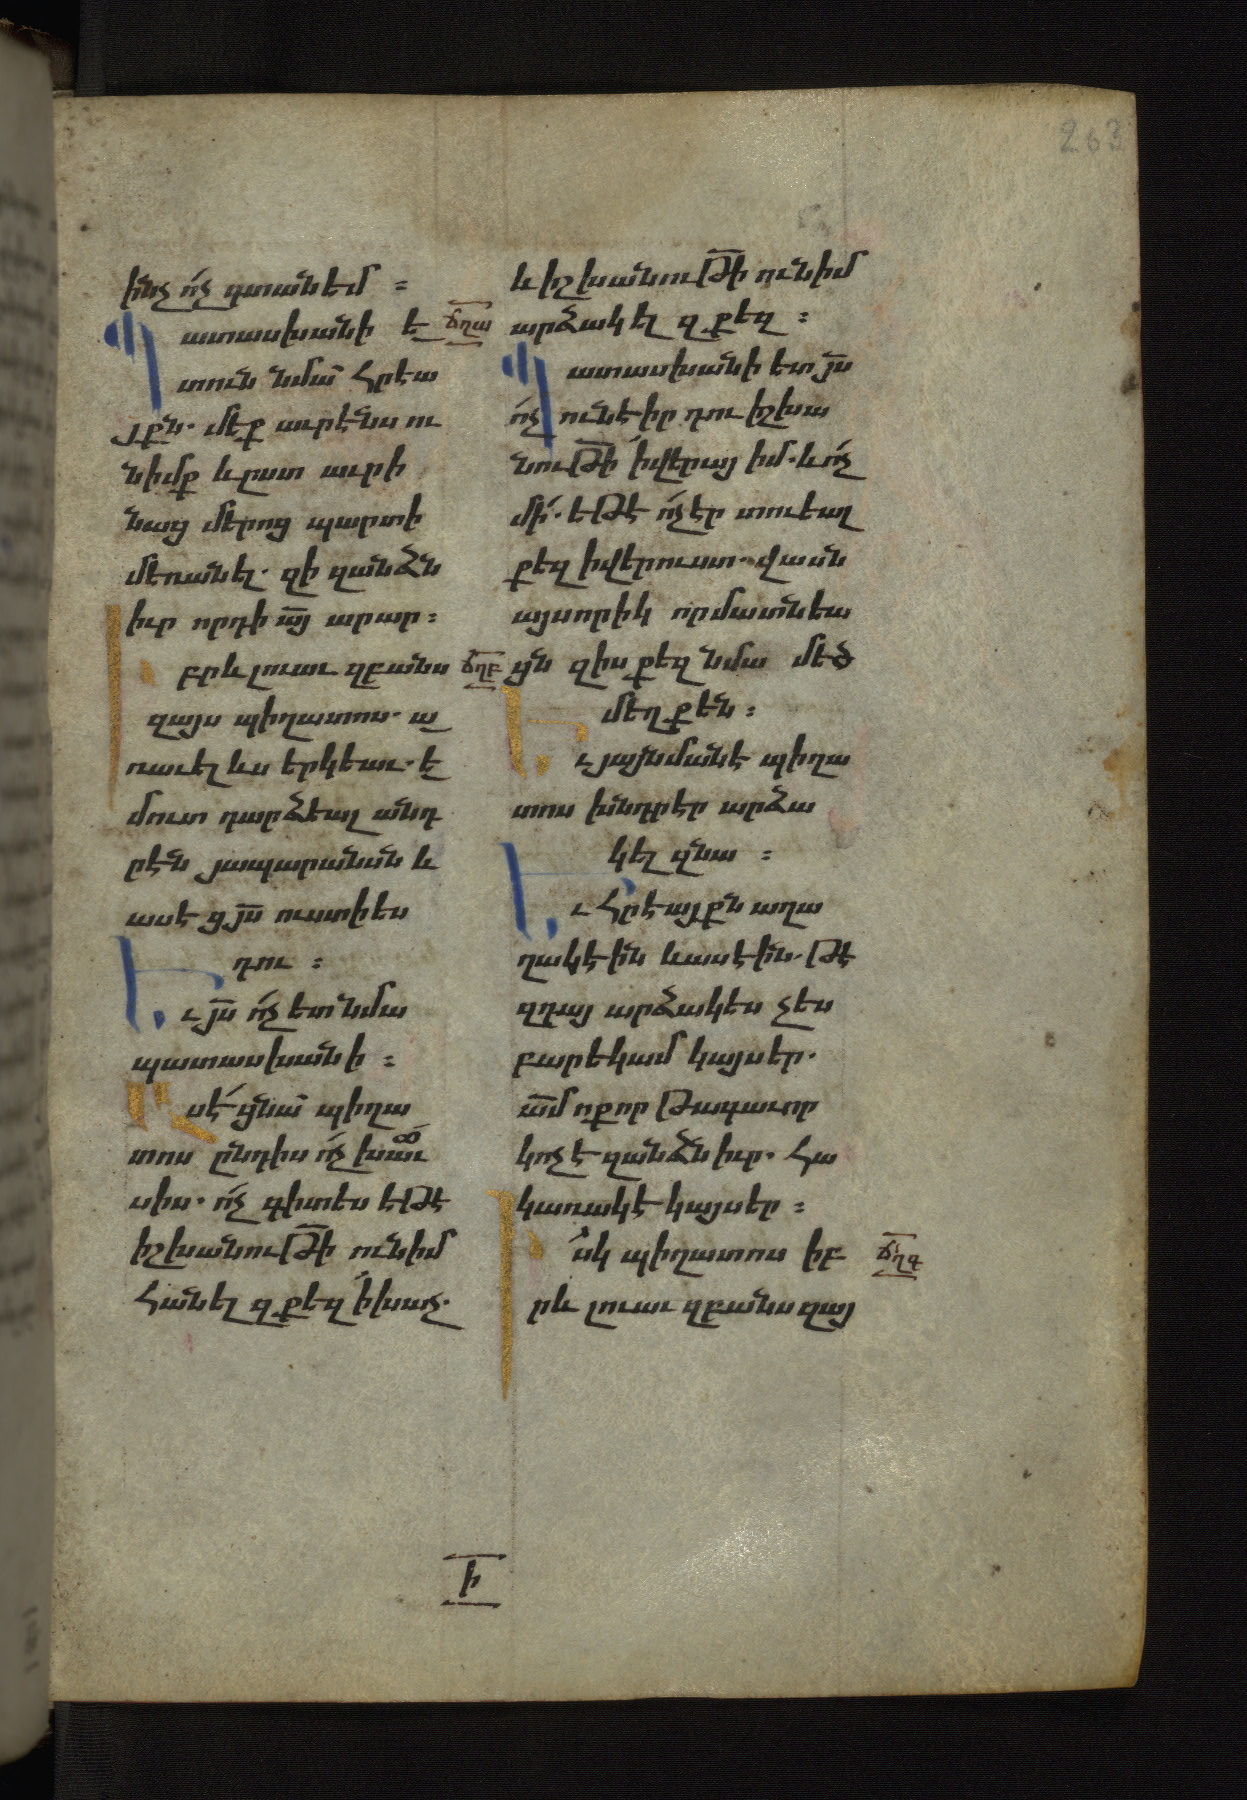 263
ինչ ո՛չ գտանեմ ։
Պատասխանի ե
տուն նմա՛ հրէա
յքն. մեք աւրէնս ու
նիմք և ըստ աւրի
նաց մերոց պարտի
մեռանել. զի զանձն
իւր որդի ա̅յ արար ։
Իբրև լուաւ զբանս
զայս պիղատոս. ա
ռաւել ևս երկեաւ. ե
մուտ դարձեալ անդ
րէն յապարանսն և
ասէ ցյ̅ս ուստի ես
դու ։
Եւ յ̅ս ո՛չ ետ նմա
պատասխանի ։
Ասէ՛ ցնա՛ պիղա
տոս ընդիս ո՛չ խաւ
սիս. ո՛չ գիտես եթէ
իշխանութի̅ ունիմ
հանել զքեզ ի խաչ.
ճղա
ճղբ
և իշխանութի̅ ունիմ
արձակել զքեզ ։
Պատասխանի ետ յ̅ս
ո՛չ ունէիր դու իշխա
նութի̅ ի վերայ իմ. և ո՛չ
մի՛. եթէ ո՛չ էր տուեալ
քեզ ի վերուստ. վասն
այսորիկ որ մատնեա
ցն զիս քեզ նմա մեծ
մեղք են ։
Եւ յայնմանէ պիղա
տոս խնդրէր արձա
կել զնա ։
Եւ հրեայքն աղա
ղակէին և ասէին. թէ
զդայ արձակես չես
բարեկամ կայսեր.
ա̅մ ոք որ թագաւոր
կոչէ զանձն իւր. հա
կառակէ կայսեր ։
Իսկ պիղատոս իբ
րև լուաւ զբանս զայ
ճղգ
Ի